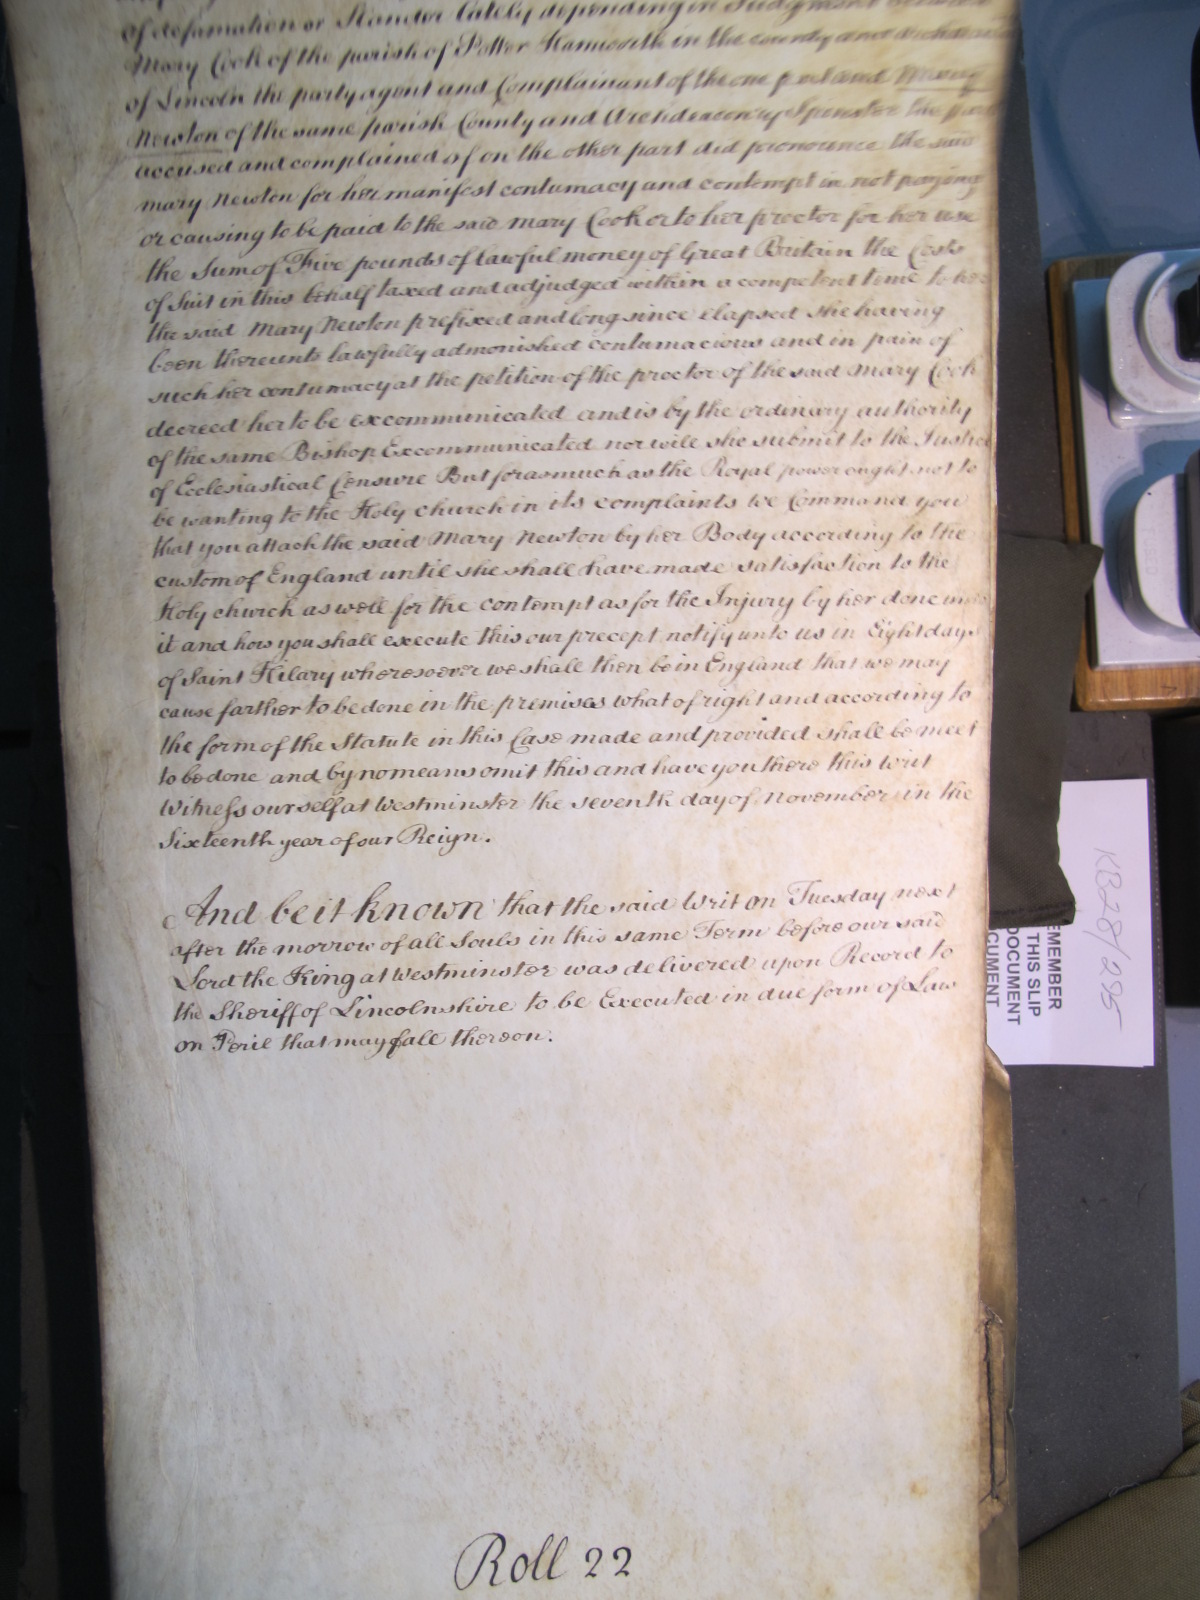 of defamation or Slander lately depending in Judgment between
Mary Cook of the parish of Potter Hanworth in the county and Archdeaconry
of Lincoln the party agent and Complainant of the one part and Mary
Newton of the same parish County and Archdeaconry Spinster the party
accused and complained of on the other part did pronounce the said
mary Newton for her manifest contumacy and contempt in not paying
or causing to be paid to the said Mary Cook or to her proctor for her use
the Sum of Five pounds of lawful money of Great Britain the Costs
of suit in this behalf taxed and adjudged within a competent time to her
the said Mary Newton prefixed and long since elapsed she having
been thereunto lawfully admonished contumacious and in pain of
such her contumacy at the petition of the proctor of the said Mary Cook
decreed her to be excommunicated and is by the ordinary authority
of the same Bishop Excommunicated nor will she submit to the Justice
of Ecclesiastical Censure But forasmuch as the Royal power ought not to
be wanting to the Holy church in its complaints We Command you
that you attach the said Mary Newton by her Body according to the
custom of England until she shall have made satisfaction to the
Holy church as well for the contempt as for the Injury by her done unto
it and how you shall execute this our precept notify unto us in Eight days
of Saint Hilary wheresoever we shall then be in England that we may
cause farther to be done in the premises what of right and according to
the form of the Statute in this Case made and provided shall be meet
to be done and by no means omit this and have you there this Writ
Witness ourself at Westminster the seventh day of November in the
Sixteenth year of our Reign.
And be it known that the said Writ on Tuesday next
after the morrow of all Souls in this same Term before our said
Lord the King at Westminster was delivered upon Record to
the Sheriff of Lincolnshire to be Executed in due form of Law
on Peril that may fall thereon.
Roll 22
KB28/295
EMEMBER
THIS SLIP
DOCUMENT
CUMENT